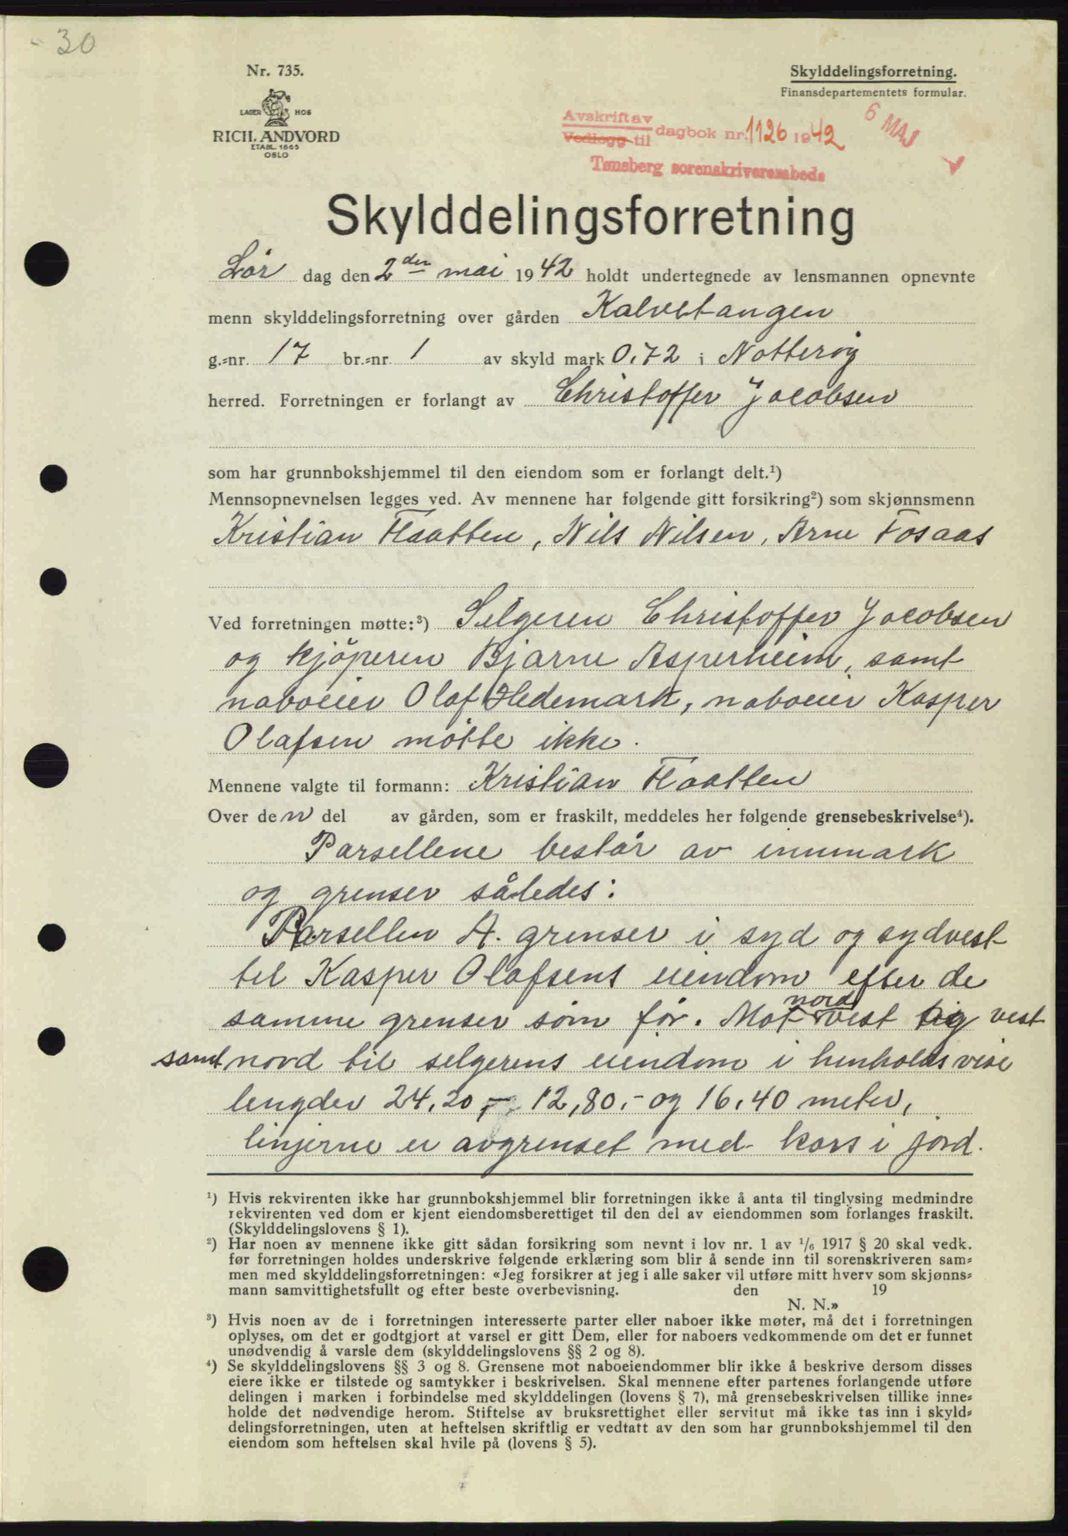 - 30
Nr. 735.
LAGER HOS
RICH. ANDVORD
ETABL. 1865
OSLO
Skylddelingsforretning.
Finansdepartementets formular.
Avskrift av
Vedlegg til dagbok nr. 1126 1942
6 MAI
Tønsberg sorenskriverembede
Skylddelingsforretning
Lør dag den 2den mai 1942 holdt undertegnede av lensmannen opnevnte
menn skylddelingsforretning over gården Kalvetangen
g.-nr. 17 br.-nr. 1 av skyld mark 0,72 i Nøtterøy
herred. Forretningen er forlangt av Christoffer Jacobsen
som har grunnbokshjemmel til den eiendom som er forlangt delt.¹)
Mennsopnevnelsen legges ved. Av mennene har følgende gitt forsikring²) som skjønnsmenn
Kristian Haatten, Nils Nilsen, Arne Fosaas
Ved forretningen møtte:³) Selgeren Christoffer Jacobsen
og kjøperen Bjarne Asperheim, samt
naboeier Olaf Hedemark, naboeier Kasper
Olafsen møtte ikke.
Mennene valgte til formann: Kristian Haatten
Over den del av gården, som er fraskilt, meddeles her følgende grensebeskrivelse⁴).
Parsellene består av innmark
og grenser således:
Parsellen A. grenser i syd og sydvest
til Kasper Olafsens eiendom efter de
samme grenser som før. Mot nordvest og vest
samt nord til selgerens eiendom i henholdsvise
lengder 24,20,- 12,80,- og 16,40 meter,
linjerne er avgrenset med kors i jord.
¹) Hvis rekvirenten ikke har grunnbokshjemmel blir forretningen ikke å anta til tinglysing medmindre
rekvirenten ved dom er kjent eiendomsberettiget til den del av eiendommen som forlanges fraskilt.
(Skylddelingslovens § 1).
²) Har noen av mennene ikke gitt sådan forsikring som nevnt i lov nr. 1 av 1/6 1917 § 20 skal vedk.
før forretningen holdes underskrive følgende erklæring som blir å sende inn til sorenskriveren sam-
men med skylddelingsforretningen: «Jeg forsikrer at jeg i alle saker vil utføre mitt hverv som skjønns-
mann samvittighetsfullt og efter beste overbevisning. den 19
N. N.»
³) Hvis noen av de i forretningen interesserte parter eller naboer ikke møter, må det i forretningen
oplyses, om det er godtgjort at varsel er gitt Dem, eller for naboers vedkommende om det er funnet
unødvendig å varsle dem (skylddelingslovens §§ 2 og 8).
⁴) Se skylddelingslovens §§ 3 og 8. Grensene mot naboeiendommer blir ikke å beskrive dersom disses
eiere ikke er tilstede og samtykker i beskrivelsen. Skal mennene efter partenes forlangende utføre
delingen i marken i forbindelse med skylddelingen (lovens § 7), må grensebeskrivelsen tillike inne-
holde det nødvendige herom. Stiftelse av bruksrettighet eller servitut må ikke tas inn i skyld-
delingsforretningen, uten at heftelsen skriftlig er vedtatt av den som har grunnbokshjemmel til den
eiendom som heftelsen skal hvile på (lovens § 5).